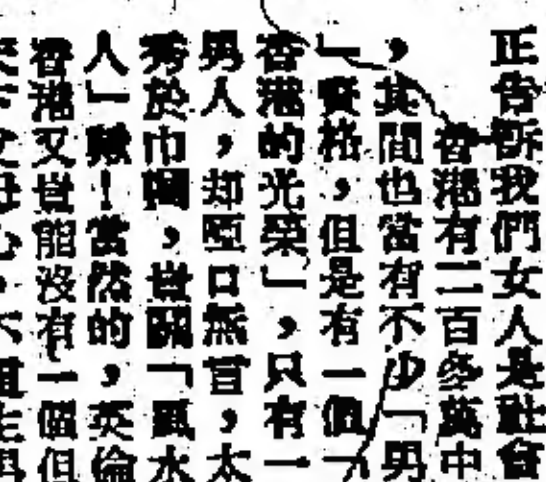 正告訴我們女人是社會
香港有二百多萬中
，其間也當有不少「男
」資格，但是有一個「
香港的光榮」，只有一
男人，却啞口無言，太
秀於巾幗，豈關「風水
人」歟！當然的，英倫
香港又豈能沒有一個但